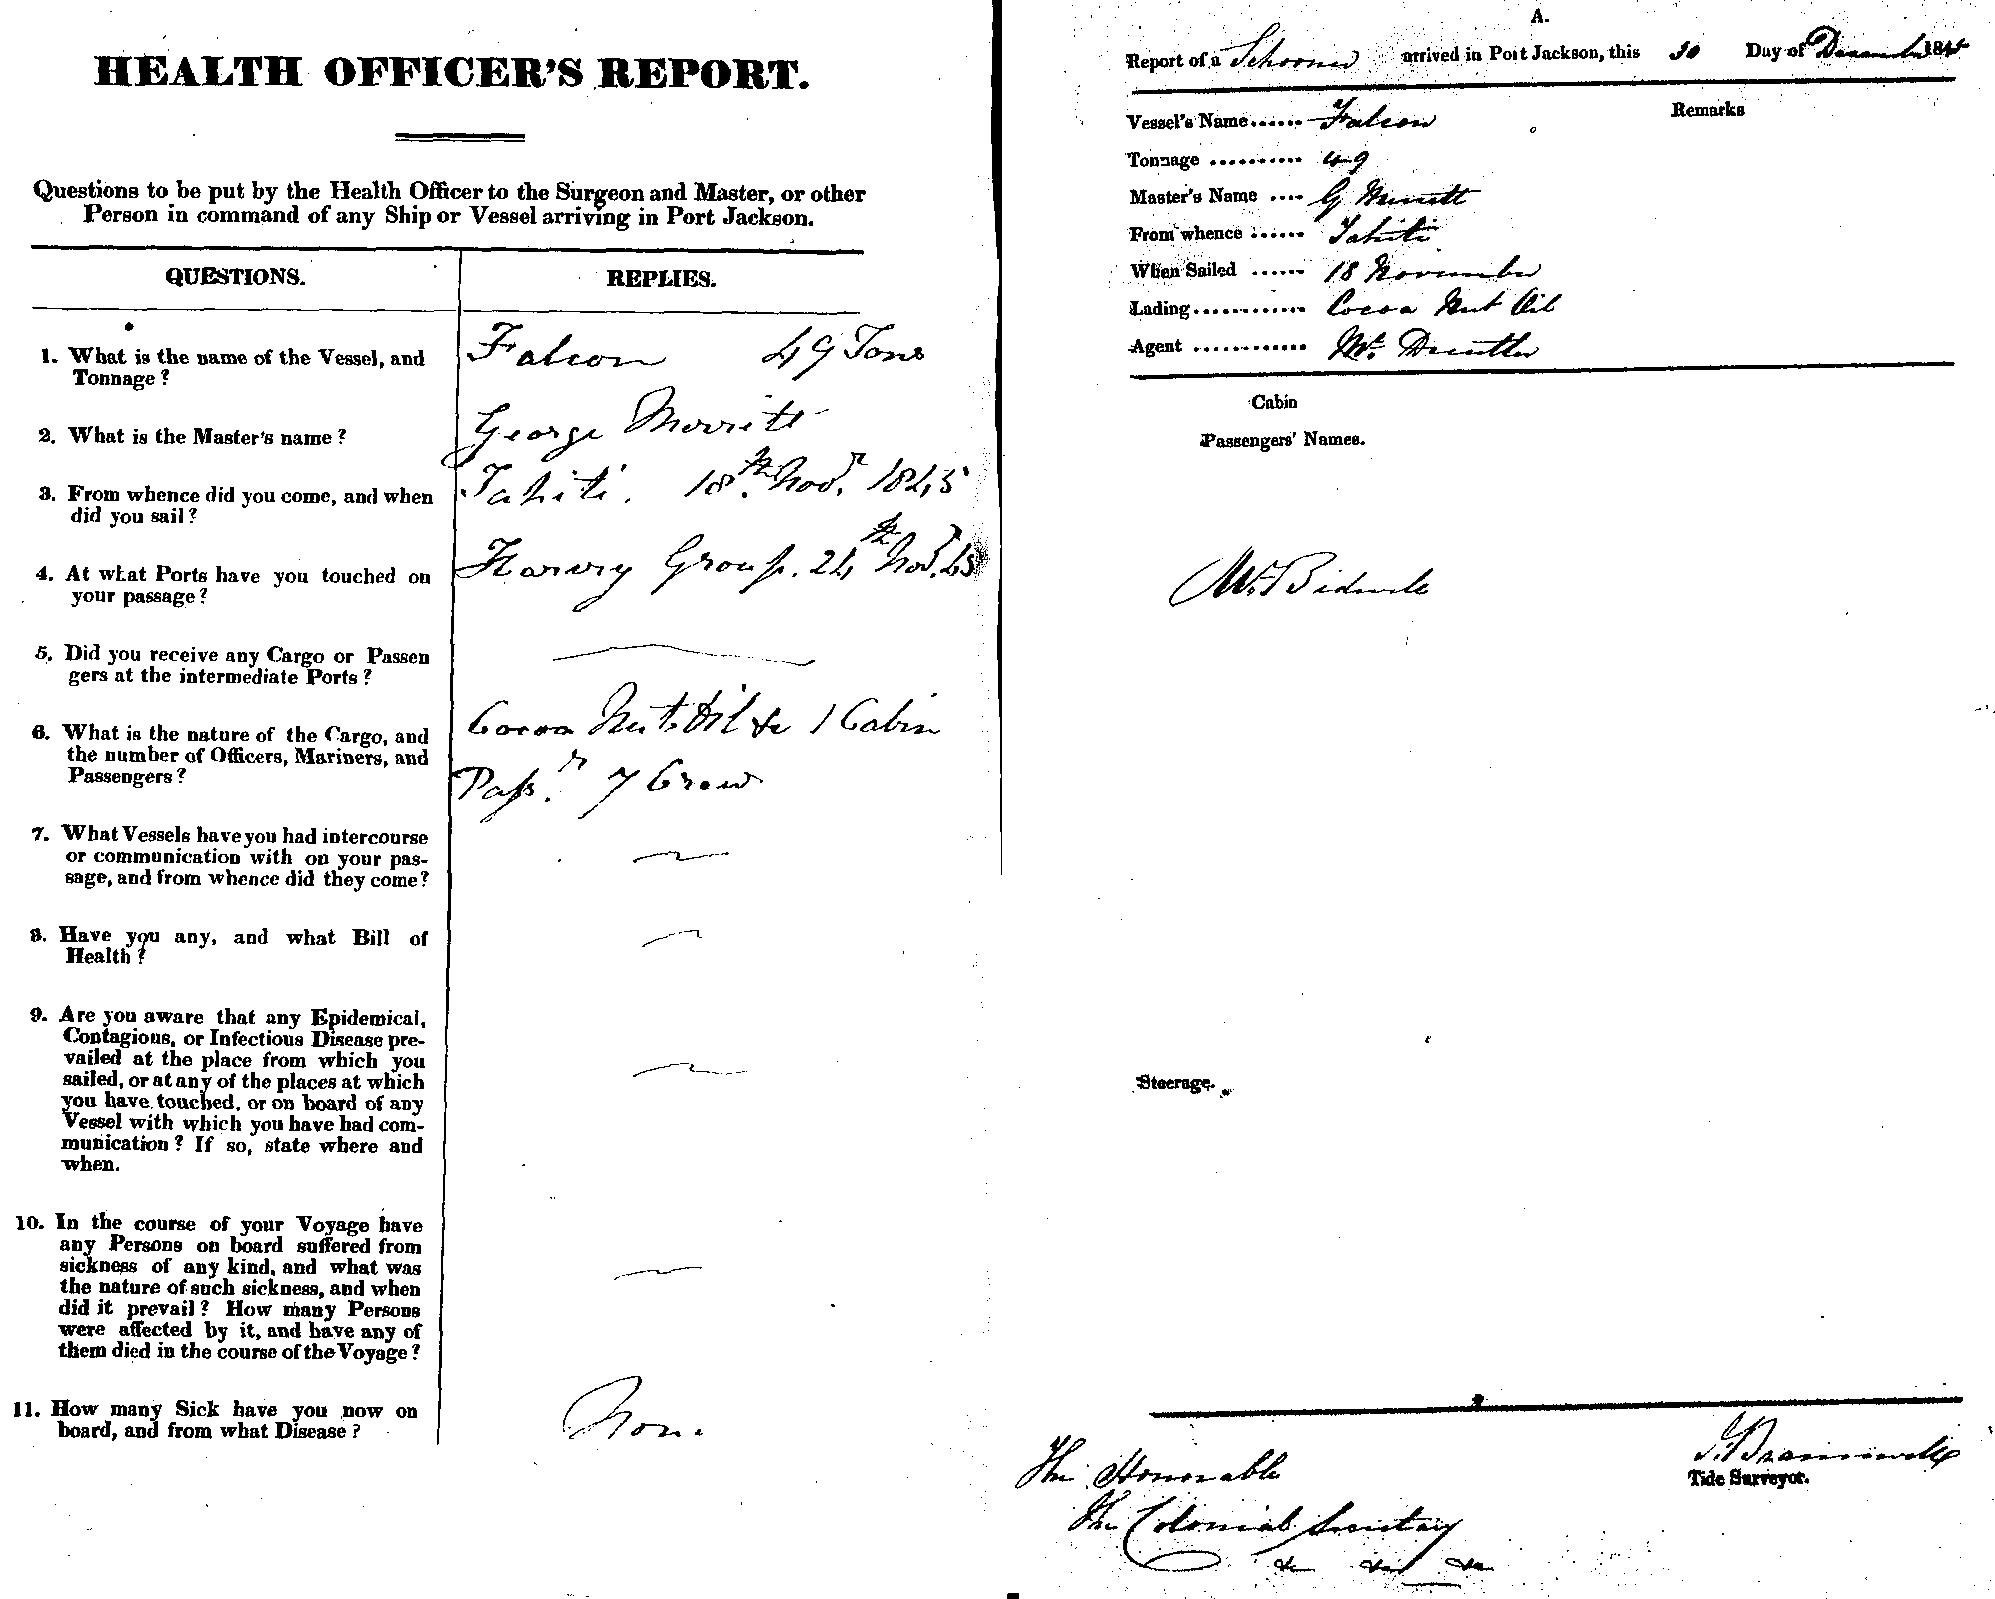 HEALTH OFFICER'S REPORT.
Questions to be put by the Health Officer to the Surgeon and Master, or other
Person in command of any Ship or Vessel arriving in Port Jackson.
QUESTIONS. REPLIES.
1. What is the name of the Vessel, and
Tonnage ?
Falcon 49 Tons
2. What is the Master's name ?
George Merritt
3. From whence did you come, and when
did you sail ?
Tahiti. 18th Novr. 1845
4. At what Ports have you touched on
your passage ?
Harvey Group. 24th Novr. 45
5. Did you receive any Cargo or Passen
gers at the intermediate Ports ?
6. What is the nature of the Cargo, and
the number of Officers, Mariners, and
Passengers ?
Cocoa Nut Oil &c 1 Cabin
Passr. 7 Crew
7. What Vessels have you had intercourse
or communication with on your pas-
sage, and from whence did they come ?
8. Have you any, and what Bill of
Health ?
9. Are you aware that any Epidemical,
Contagious, or Infectious Disease pre-
vailed at the place from which you
sailed, or at any of the places at which
you have touched, or on board of any
Vessel with which you have had com-
munication ? If so, state where and
when.
10. In the course of your Voyage have
any Persons on board suffered from
sickness of any kind, and what was
the nature of such sickness, and when
did it prevail ? How many Persons
were affected by it, and have any of
them died in the course of the Voyage ?
11. How many Sick have you now on
board, and from what Disease ?
Non.
A.
Report of a Schooner arrived in Port Jackson, this 30 Day of December 1845
Remarks
Vessel's Name...... Falcon
Tonnage ........... 49
Master's Name .... G Merritt
From whence ...... Tahiti
When Sailed ...... 18 November
Lading............ Cocoa Nut Oil
Agent ............ Mr.
Cabin
Passengers' Names.
Mr. Bidwell
Steerage.
J. Bramwell
Tide Surveyor.
The Honorable
The Colonial Secretary
&c &c &c